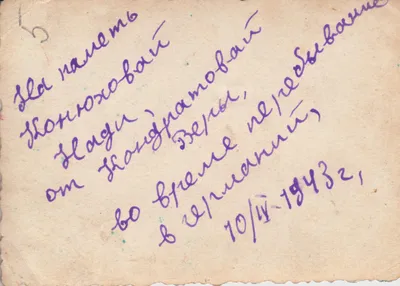 5
На память
Конюховой
Нади,
от Кондратовой
Веры,
во время пересывание
в германий,
10/IV-1943 г,